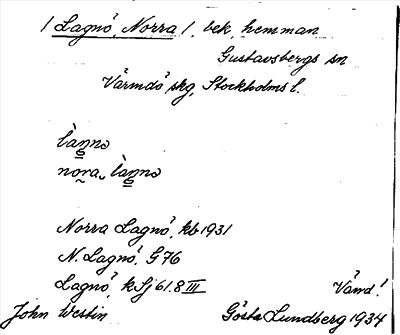 / Lagnö, Norra /. bek. hemman
Gustavsbergs sn
Värmdö skg, Stockholms l.
làŋnə
nora làŋnə
Norra Lagnö, kb 1931
N. Lagnö. G 76
Lagnö, kSj 61.8 III
Vänd!
John Westin
Gösta Lundberg 1934